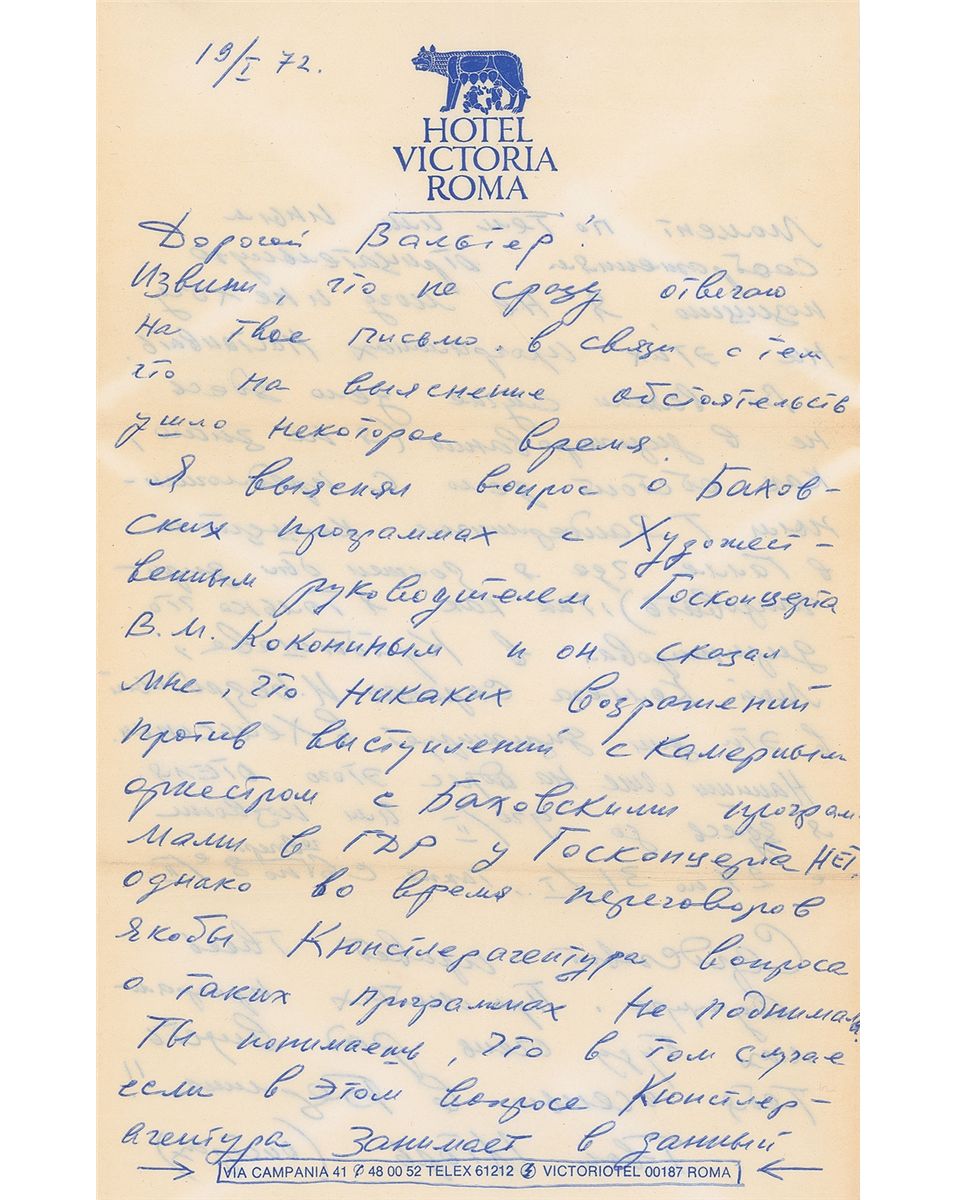 19/I 72.
HOTEL
VICTORIA
ROMA
Дорогой Вальтер!
Извини, что не сразу отвечаю
на твое письмо. в связи с тем
что на выяснение обстоятельств
ушло некоторое время.
Я выяснял вопрос о Бахов-
ских программах с Художест-
венным руководителем Госконцерта
В. М. Кокониным и он сказал
мне, что никаких возражений
против выступлений с Камерным
оркестром с Баховскими програм-
мами в ГДР у Госконцерта НЕТ.
однако во время переговоров
якобы Кюнстлерагентура вопроса
о таких программах не поднимала.
Ты понимаешь, что в том случае
если в этом вопросе Кюнстлер-
агентура занимает в данный
VIA CAMPANIA 41 ✆ 48 00 52 TELEX 61212 VICTORIOTEL 00187 ROMA